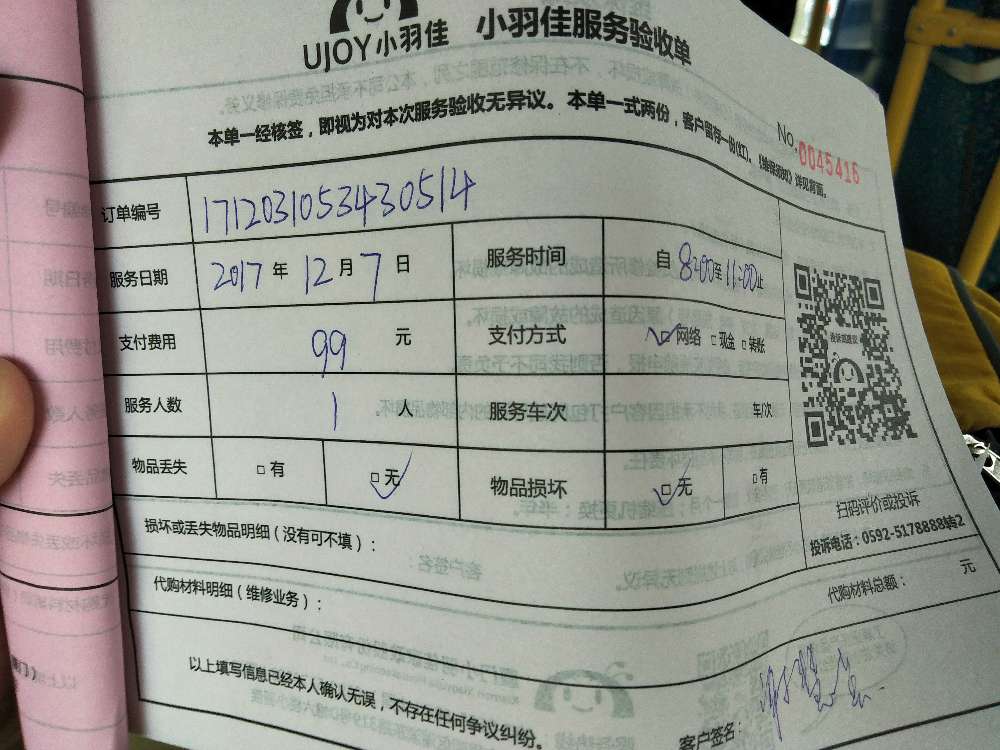 UJOY小羽佳 小羽佳服务验收单
本单一经核签，即视为对本次服务验收无异议。本单一式两份，客户留存一份(红)。《维保须知》详见背面。
No.0045416
订单编号 17120310534430514
服务日期 2017 年 12 月 7 日 服务时间 自 8:00 至 11:00 止
支付费用 99 元 支付方式 ☑网络 □现金 □转账
服务人数 1 人 服务车次 车/次
物品丢失 □有 ☑无 物品损坏 ☑无 □有
扫码评价或投诉
投诉电话：0592-5178888转2
损坏或丢失物品明细（没有可不填）：
代购材料明细（维修业务）： 代购材料总额： 元
以上填写信息已经本人确认无误，不存在任何争议纠纷。
客户签名：